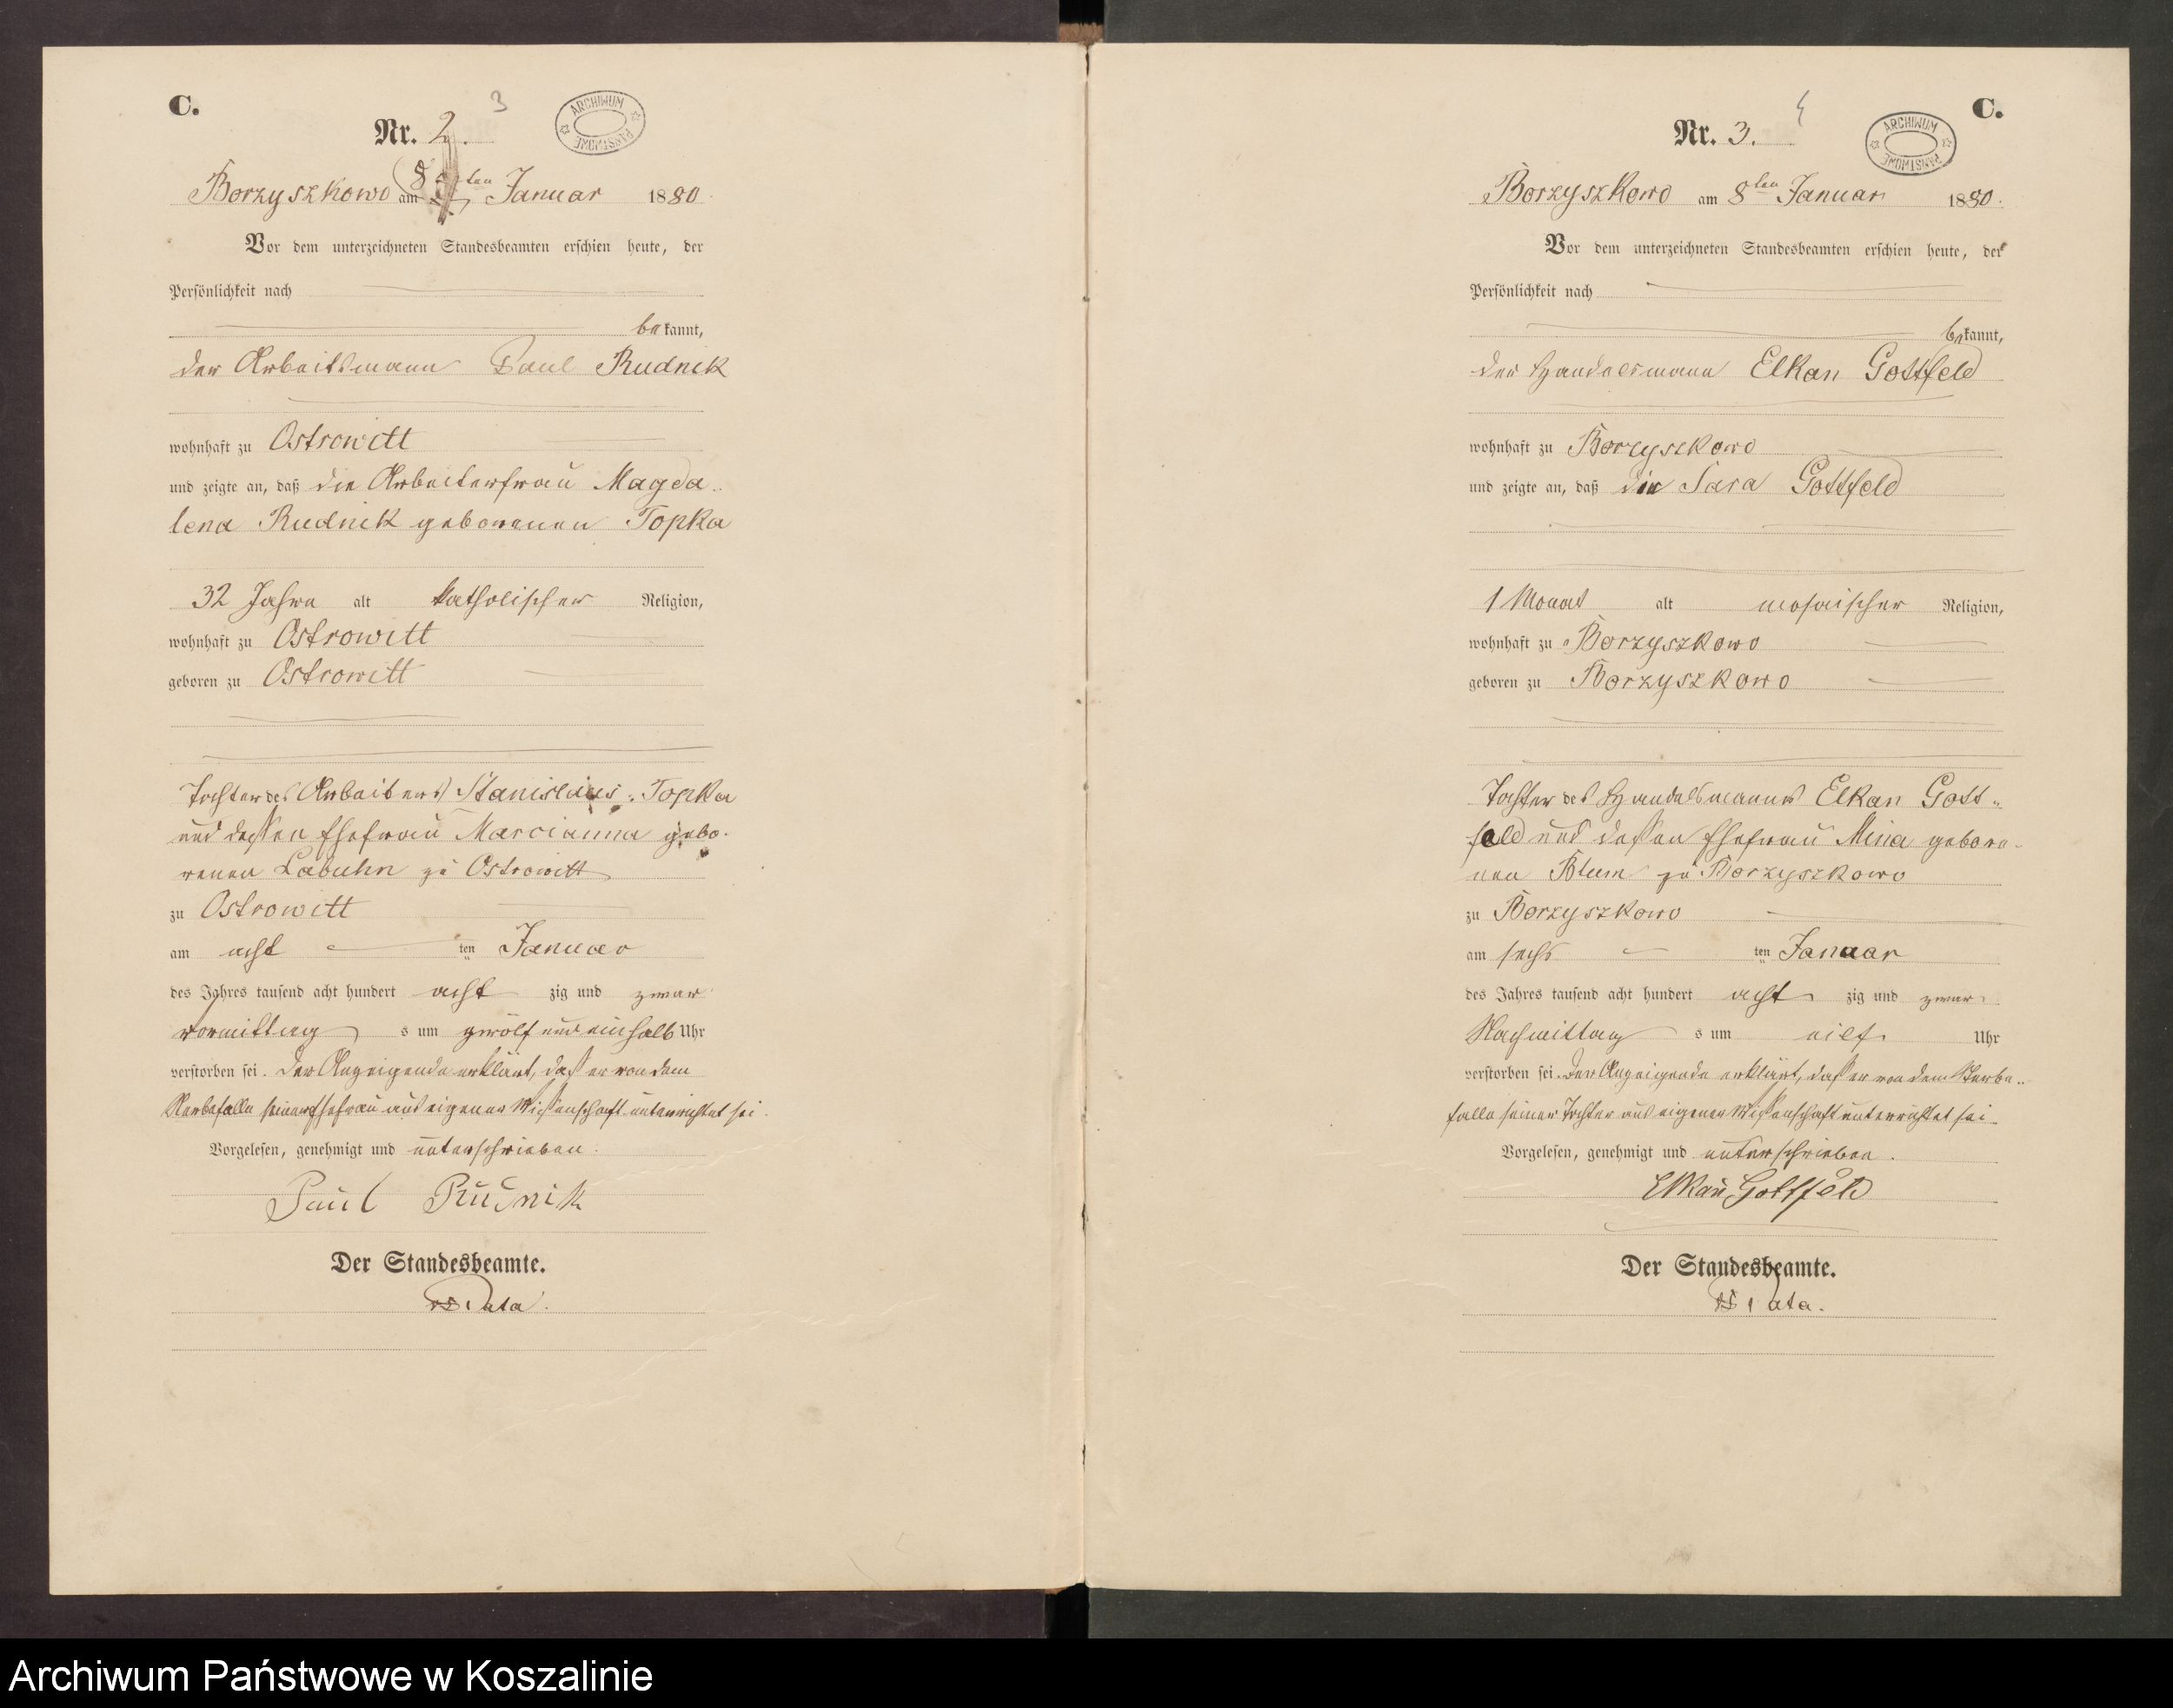 C.
3
Nr. 2.
ARCHIWUM PAŃSTWOWE
Borzyszkowo am 8ten Januar 1880.
Vor dem unterzeichneten Standesbeamten erschien heute, der
Persönlichkeit nach
bekannt,
der Arbeitsmann Paul Rudnik
wohnhaft zu Ostrowitt
und zeigte an, daß die Arbeiterfrau Magda-
lena Rudnik geborenen Topka
32 Jahre alt katholischer Religion,
wohnhaft zu Ostrowitt
geboren zu Ostrowitt
Tochter des Arbeiters Stanislaus Topka
und dessen Ehefrau Marcianna gebo-
renen Labuhn zu Ostrowitt
zu Ostrowitt
am acht ten Januar
des Jahres tausend acht hundert acht zig und zwar
vormittag s um zwölf und einhalb Uhr
verstorben sei. Der Anzeigende erklärt, daß er von dem
Sterbefalle seiner Ehefrau aus eigener Wissenschaft unterrichtet sei.
Vorgelesen, genehmigt und unterschrieben.
Paul Rudnik
Der Standesbeamte.
Pata.
C.
4
Nr. 3.
ARCHIWUM PAŃSTWOWE
Borzyszkowo am 8ten Januar 1880.
Vor dem unterzeichneten Standesbeamten erschien heute, der
Persönlichkeit nach
bekannt,
der Handelsmann Elkan Gottfeld
wohnhaft zu Borzyszkowo
und zeigte an, daß die Sara Gottfeld
1 Monat alt mosaischer Religion,
wohnhaft zu Borzyszkowo
geboren zu Borzyszkowo
Tochter des Handelsmanns Elkan Gott-
feld und dessen Ehefrau Mina gebore-
nen Blum zu Borzyszkowo
zu Borzyszkowo
am sechs ten Januar
des Jahres tausend acht hundert acht zig und zwar
Nachmittag s um eilf Uhr
verstorben sei. Der Anzeigende erklärt, daß er von dem Sterbe-
falle seiner Tochter aus eigener Wissenschaft unterrichtet sei.
Vorgelesen, genehmigt und unterschrieben.
Elkan Gottfeld
Der Standesbeamte.
Pata.
Archiwum Państwowe w Koszalinie